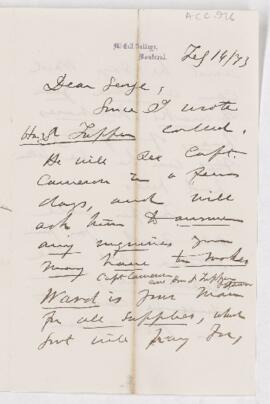 ACC 926
McGill College,
Montreal.
Feb 14/73
Dear George,
Since I wrote
Hon. Dr Tupper called.
He will see Capt.
Cameron in a few
days, and will
ask him to answer
any inquiries you
may have to make
Capt Cameron and Dr Tupper
Ward is your man
for all supplies, which
Govt will pay for,